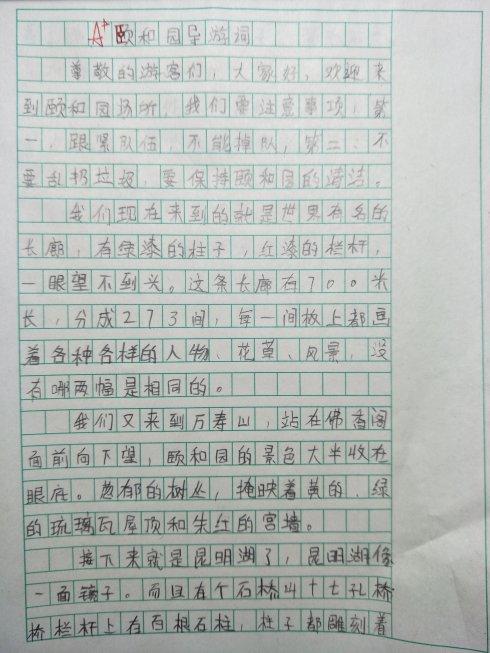 A+ 颐和园导游词
尊敬的游客们，大家好，欢迎来
到颐和园场所，我们要注意事项，第
一，跟紧队伍，不能掉队，第二：不
要乱扔垃圾，要保持颐和园的清洁。
我们现在来到的就是世界有名的
长廊，有绿漆的柱子，红漆的栏杆，
一眼望不到头。这条长廊有700米
长，分成273间，每一间枚上都画
着各种各样的人物、花草、风景，没
有哪两幅是相同的。
我们又来到万寿山，站在佛香阁
面前向下望，颐和园的景色大半收在
眼底。葱郁的树丛，掩映着黄的、绿
的琉璃瓦屋顶和朱红的宫墙。
接下来就是昆明湖了，昆明湖像
一面镜子。而且有个石桥叫十七孔桥
桥栏杆上有百根石柱，柱子都雕刻着